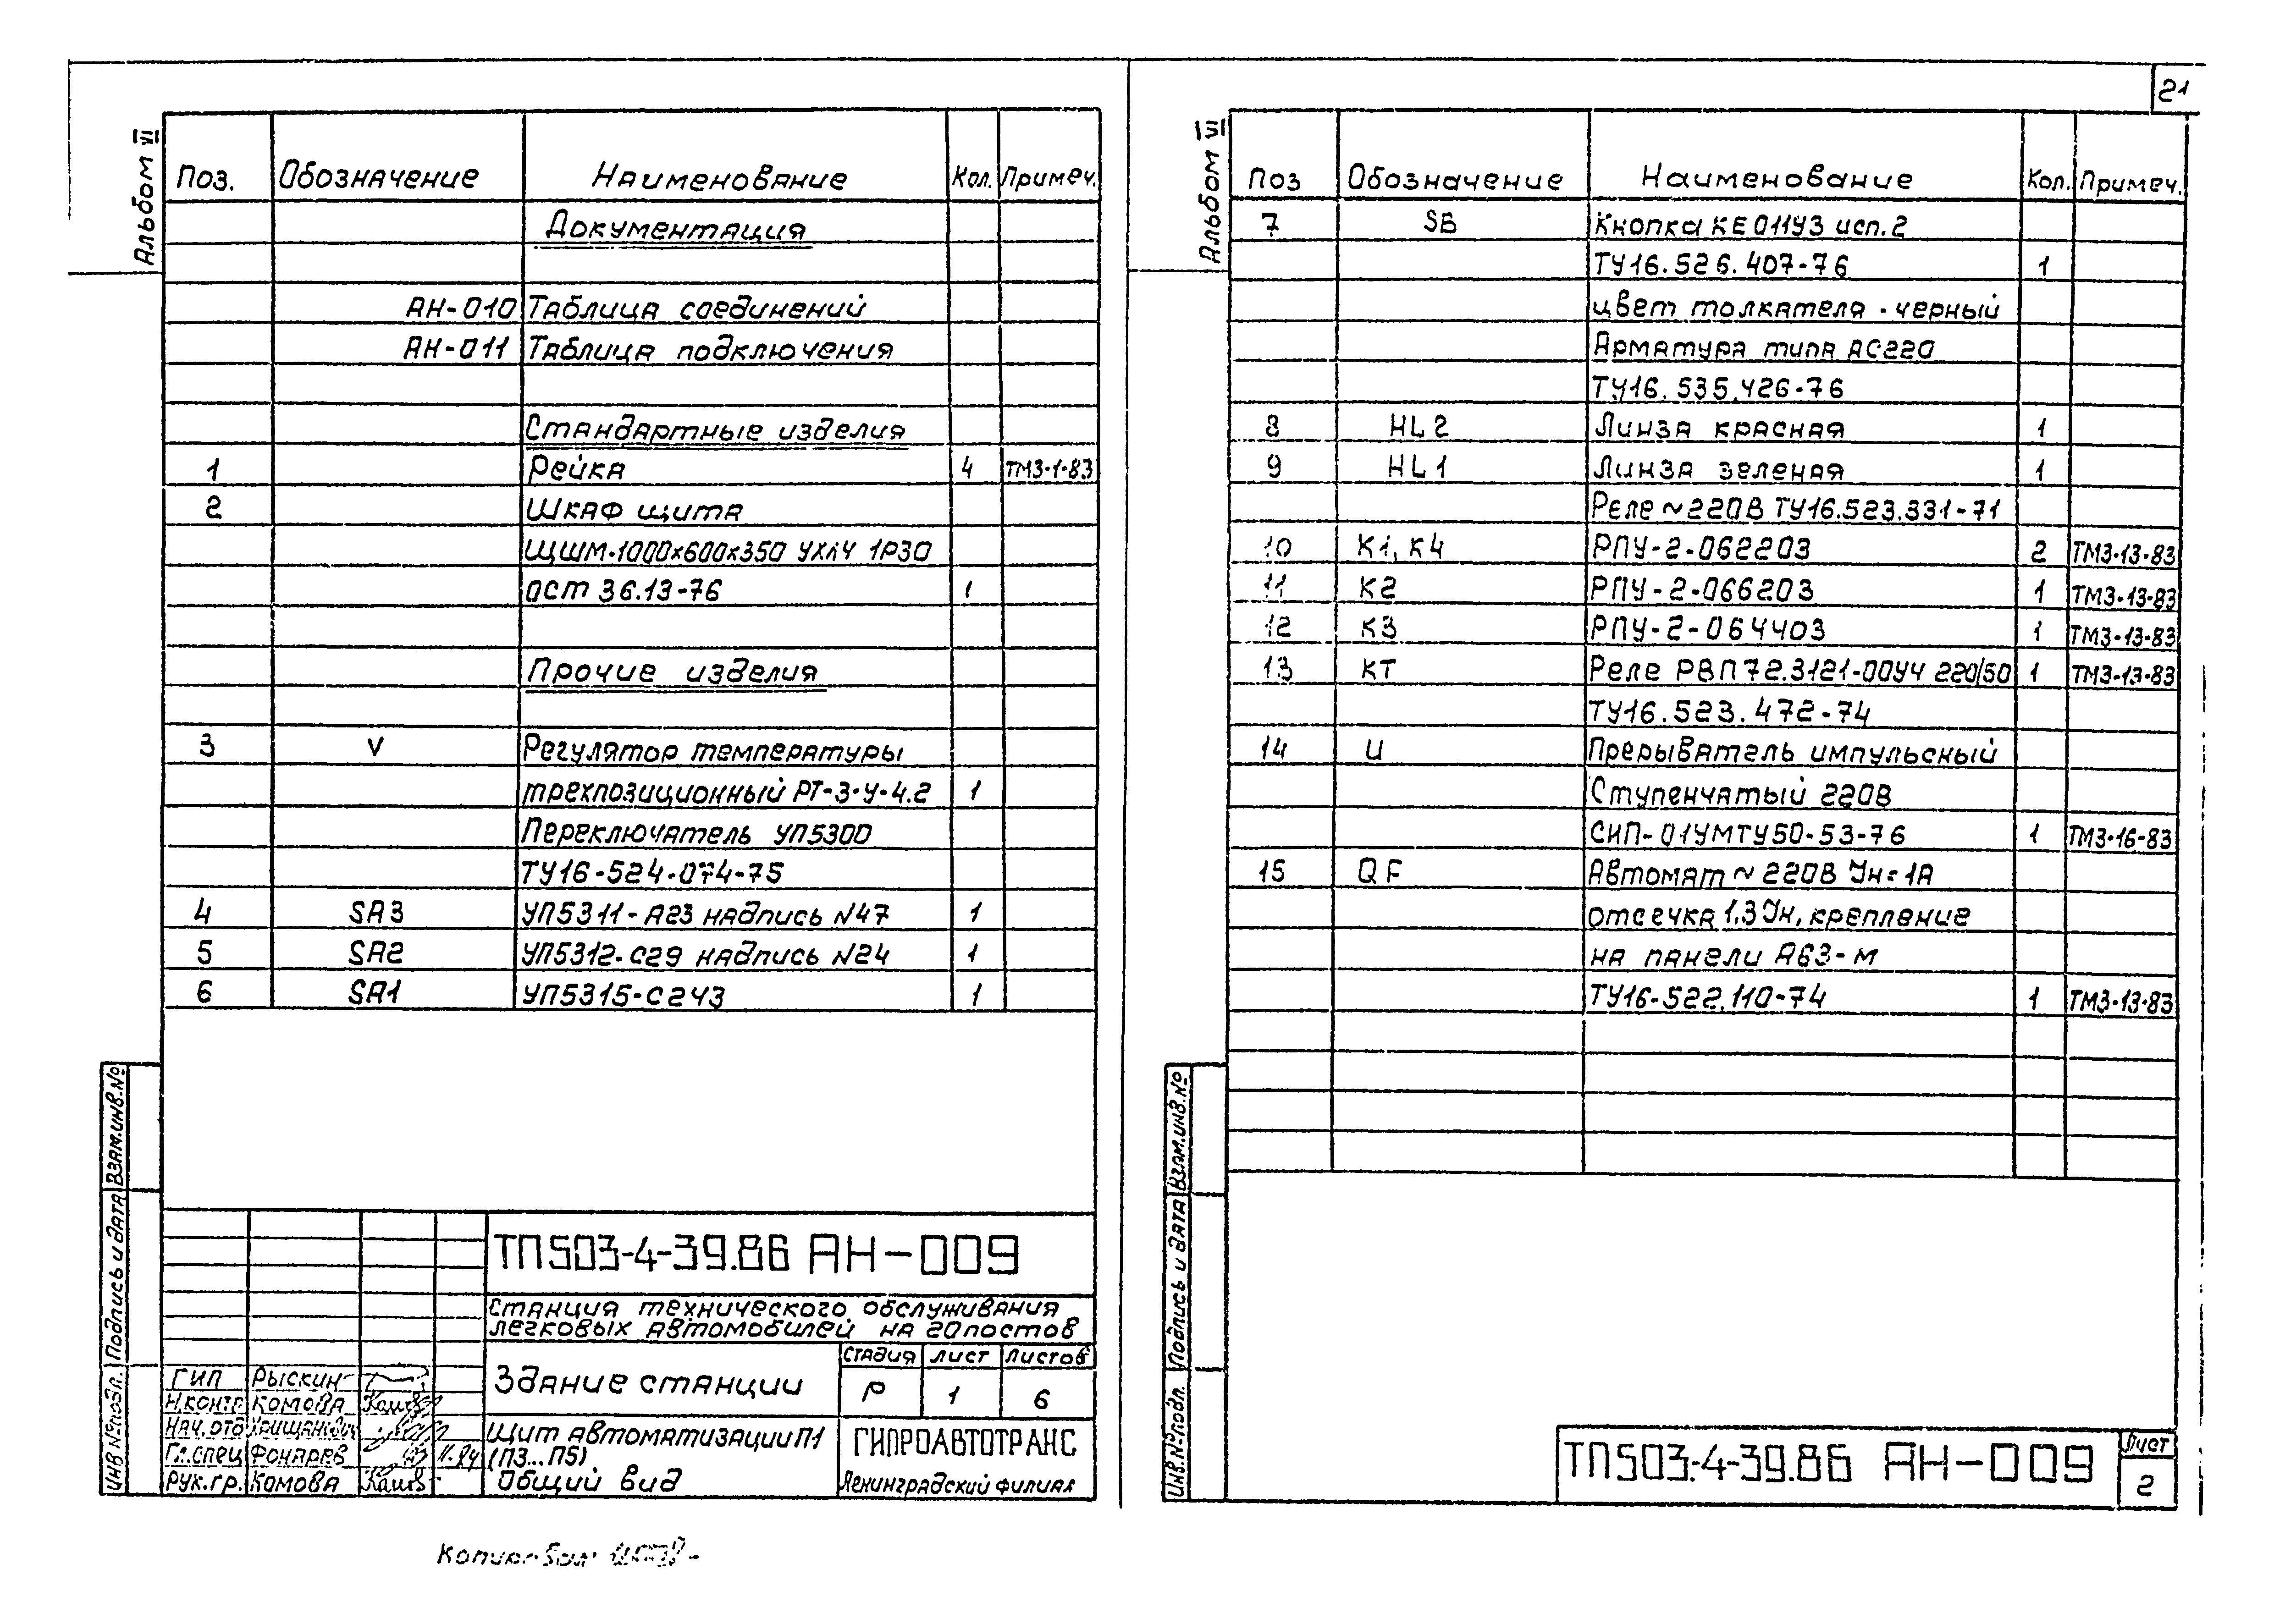 21
Альбом VI
Поз. Обозначение Наименование Кол. Примеч.
Документация
АН-010 Таблица соединений
АН-011 Таблица подключения
Стандартные изделия
1 Рейка 4 ТМ3-1-83
2 Шкаф щита
ЩШМ-1000х600х350 УХЛ4 1Р30
ост 36.13-76 1
Прочие изделия
3 V Регулятор температуры
трехпозиционный РТ-3-У-4.2 1
Переключатель УП5300
ТУ16-524.074-75
4 SA3 УП5311-А23 надпись №47 1
5 SA2 УП5312-С29 надпись №24 1
6 SA1 УП5315-С243 1
Взам.инв.№
Подпись и дата
Инв.№подл.
ТП503-4-39.86 АН-009
Станция технического обслуживания
легковых автомобилей на 20постов
Здание станции
стадия лист листов
Р 1 6
ГИП Рыскин
Н.контр Комова
Нач.отд
Гл.спец Фонарев 11.84
Рук.гр. Комова
Щит автоматизации П1
(П3...П5)
Общий вид
ГИПРОАВТОТРАНС
Ленинградский филиал
Копировал:
Альбом VI
Поз Обозначение Наименование Кол. Примеч.
7 SB Кнопка КЕ011У3 исп.2
ТУ16.526.407-76 1
цвет толкателя - черный
Арматура типа АС220
ТУ16.535.426-76
8 HL2 Линза красная 1
9 HL1 Линза зеленая 1
Реле ~220В ТУ16.523.331-71
10 К1, К4 РПУ-2-062203 2 ТМ3-13-83
11 К2 РПУ-2-066203 1 ТМ3-13-83
12 К3 РПУ-2-064403 1 ТМ3-13-83
13 КТ Реле РВП72.3121-00У4 220/50 1 ТМ3-13-83
ТУ16.523.472-74
14 U Прерыватель импульсный
Ступенчатый 220В
СИП-01УМТУ50-53-76 1 ТМ3-16-83
15 QF Автомат ~ 220В Iн=1А
отсечка 1,3Iн, крепление
на панели А63-М
ТУ16-522.110-74 1 ТМ3-13-83
Взам.инв.№
Подпись и дата
Инв.№подл.
ТП503-4-39.86 АН-009
Лист
2